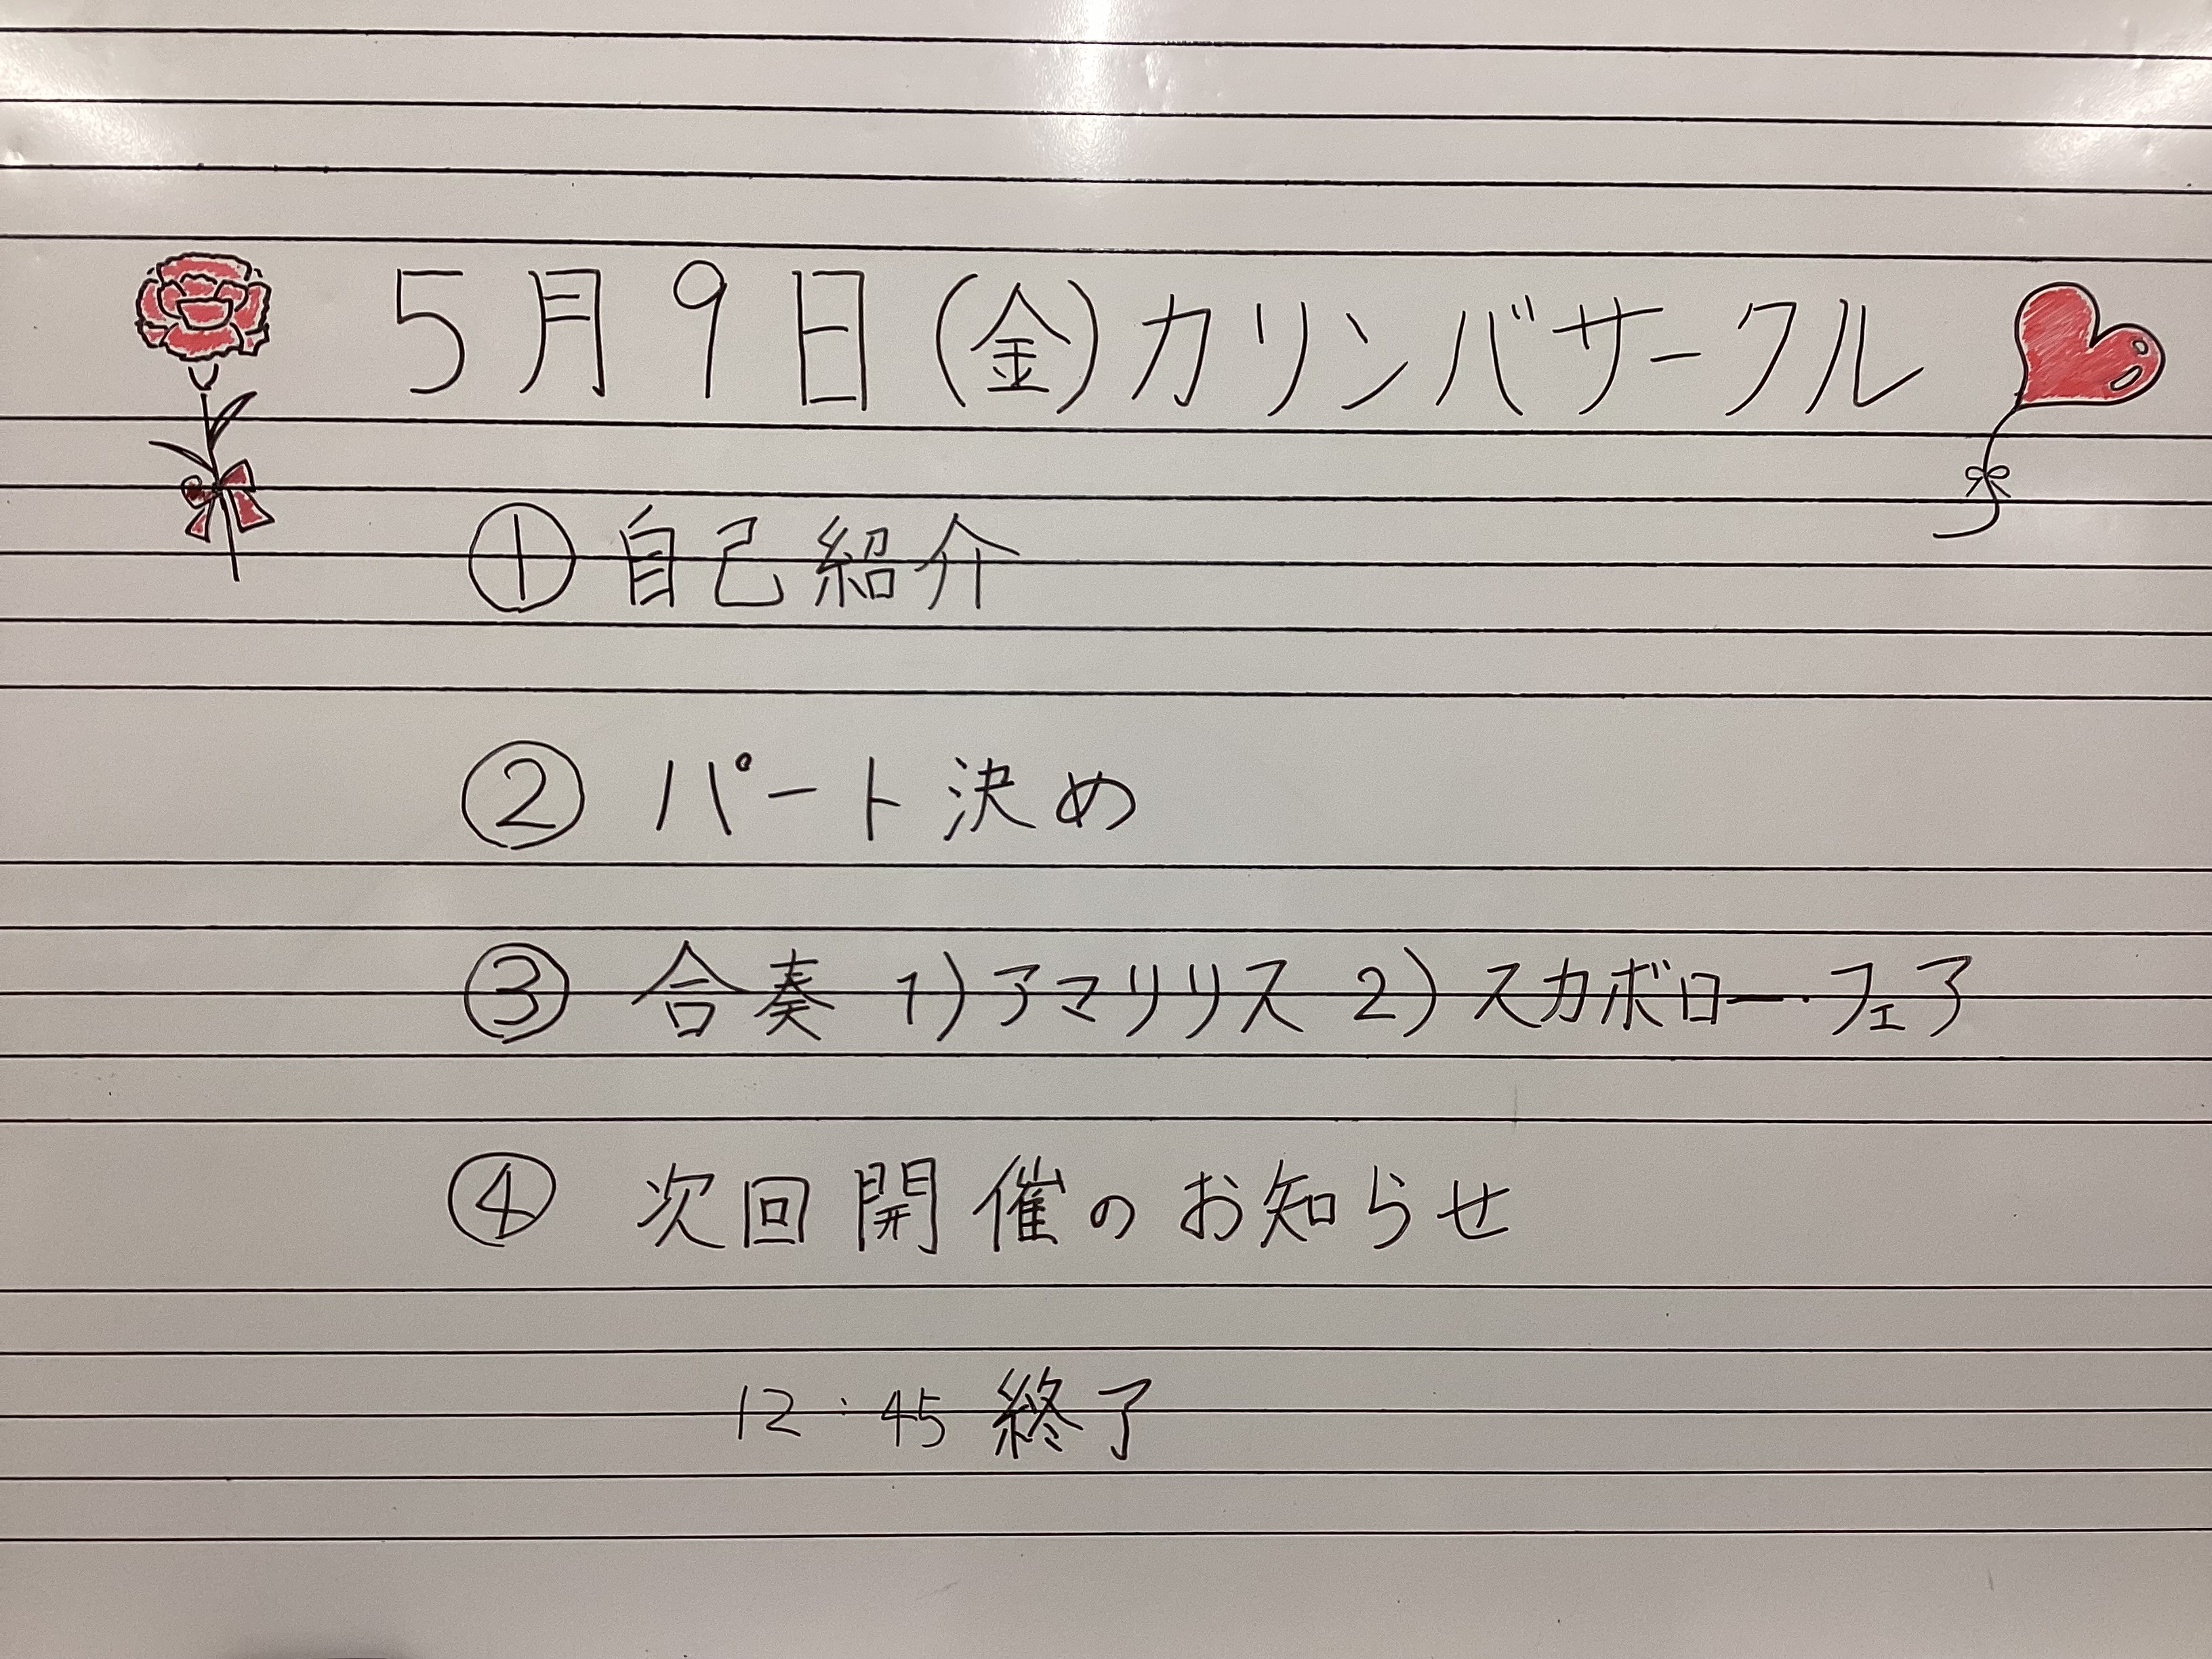 5月9日(金)カリンバサークル
① 自己紹介
② パート決め
③ 合奏 1)アマリリス 2)スカボロー・フェア
④ 次回開催のお知らせ
12:45 終了